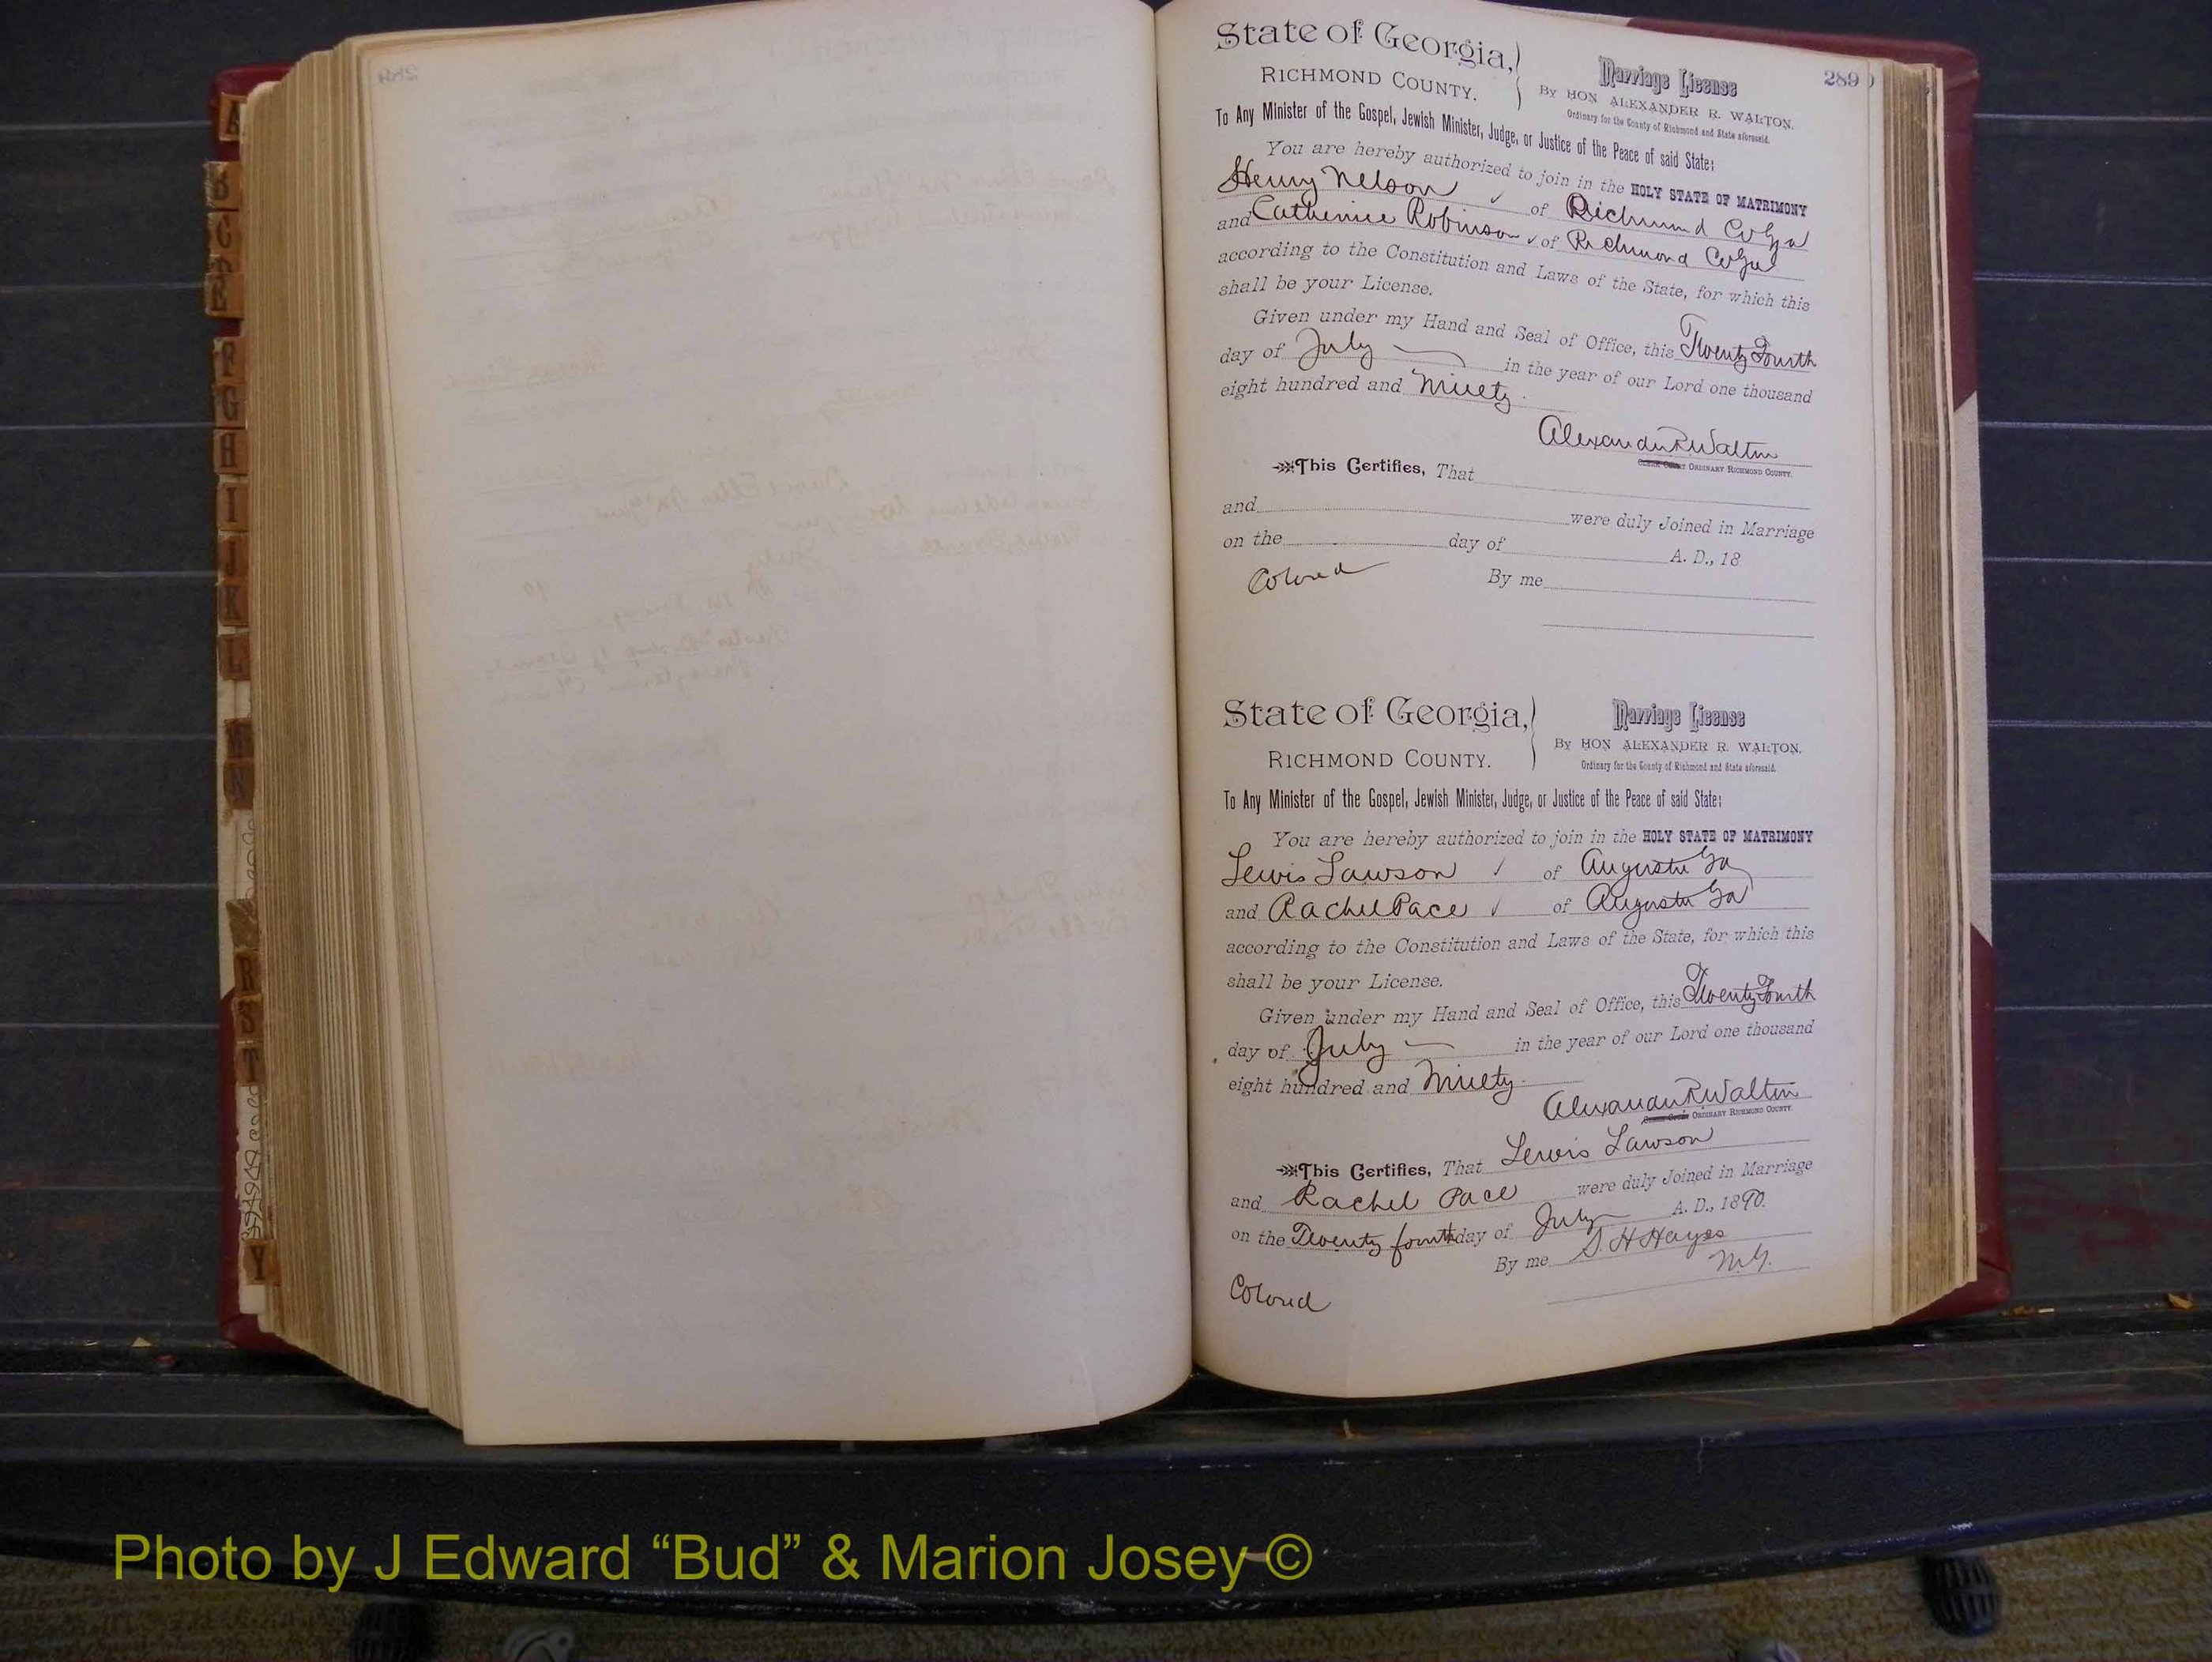 289
State of Georgia,
RICHMOND COUNTY.
Marriage License
By HON ALEXANDER R. WALTON.
Ordinary for the County of Richmond and State aforesaid.
To Any Minister of the Gospel, Jewish Minister, Judge, or Justice of the Peace of said State:
You are hereby authorized to join in the HOLY STATE OF MATRIMONY
Henry Nelson of Richmond Co Ga
and Catherine Robinson of Richmond Co Ga
according to the Constitution and Laws of the State, for which this
shall be your License.
Given under my Hand and Seal of Office, this Twenty Fourth
day of July in the year of our Lord one thousand
eight hundred and Ninety.
Alexander R Walton
ORDINARY RICHMOND COUNTY.
This Certifies, That
and were duly Joined in Marriage
on the day of A. D., 18
Colored By me
State of Georgia,
RICHMOND COUNTY.
Marriage License
By HON ALEXANDER R. WALTON.
Ordinary for the County of Richmond and State aforesaid.
To Any Minister of the Gospel, Jewish Minister, Judge, or Justice of the Peace of said State:
You are hereby authorized to join in the HOLY STATE OF MATRIMONY
Lewis Lawson of Augusta Ga
and Rachel Pace of Augusta Ga
according to the Constitution and Laws of the State, for which this
shall be your License.
Given under my Hand and Seal of Office, this Twenty Fourth
day of July in the year of our Lord one thousand
eight hundred and Ninety.
Alexander R Walton
ORDINARY RICHMOND COUNTY.
This Certifies, That Lewis Lawson
and Rachel Pace were duly Joined in Marriage
on the Twenty fourth day of July A. D., 1890.
By me S. H Hayes
M.G.
Colored
Photo by J Edward “Bud” & Marion Josey ©